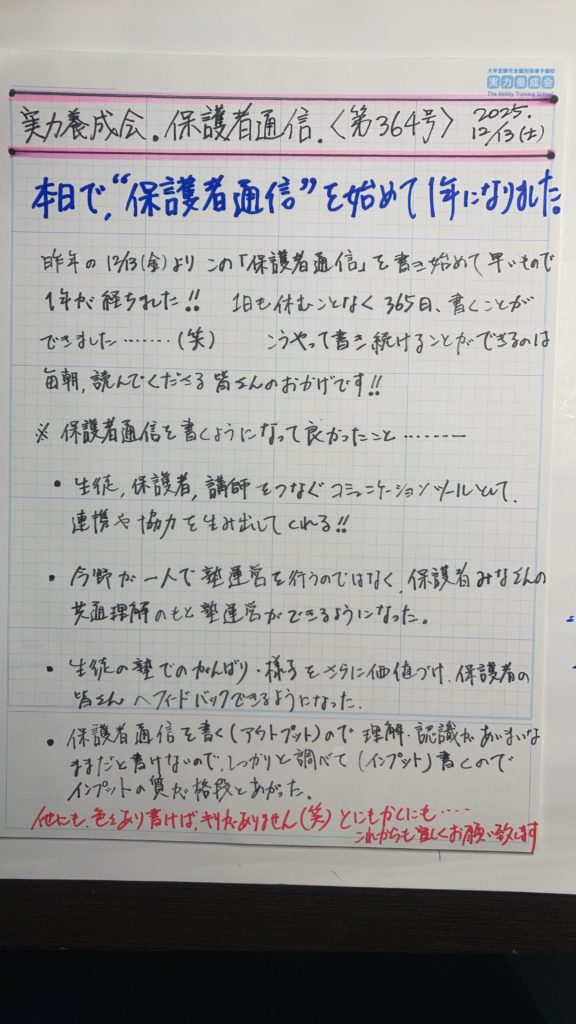 大学受験完全個別指導予備校
実力養成会
The Ability Training School
実力養成会.保護者通信.〈第364号〉 2025.
12/13(土)
本日で,“保護者通信”を始めて1年になりました.
昨年の12/13(金)よりこの「保護者通信」を書き始めて早いもので
1年が経ちました!! 1日も休むことなく365日、書くことが
できました……(笑) こうやって書き続けることができるのは
毎朝,読んでくださる皆さんのおかげです!!
※保護者通信を書くようになって良かったこと……
• 生徒,保護者,講師をつなぐコミュニケーションツールとして,
連携や協力を生み出してくれる!!
• 今野が一人で塾運営を行うのではなく,保護者みなさんの
共通理解のもと塾運営ができるようになった。
• 生徒の塾でのがんばり・様子をさらに価値づけ,保護者の
皆さんへフィードバックできるようになった.
• 保護者通信を書く(アウトプット)ので理解・認識があいまいな
ままだと書けないので,しっかりと調べて(インプット)書くので
インプットの質が格段とあがった。
他にも,色々あり書けば,キリがありません(笑) とにもかくにも‥‥
これからも宜しくお願い致します